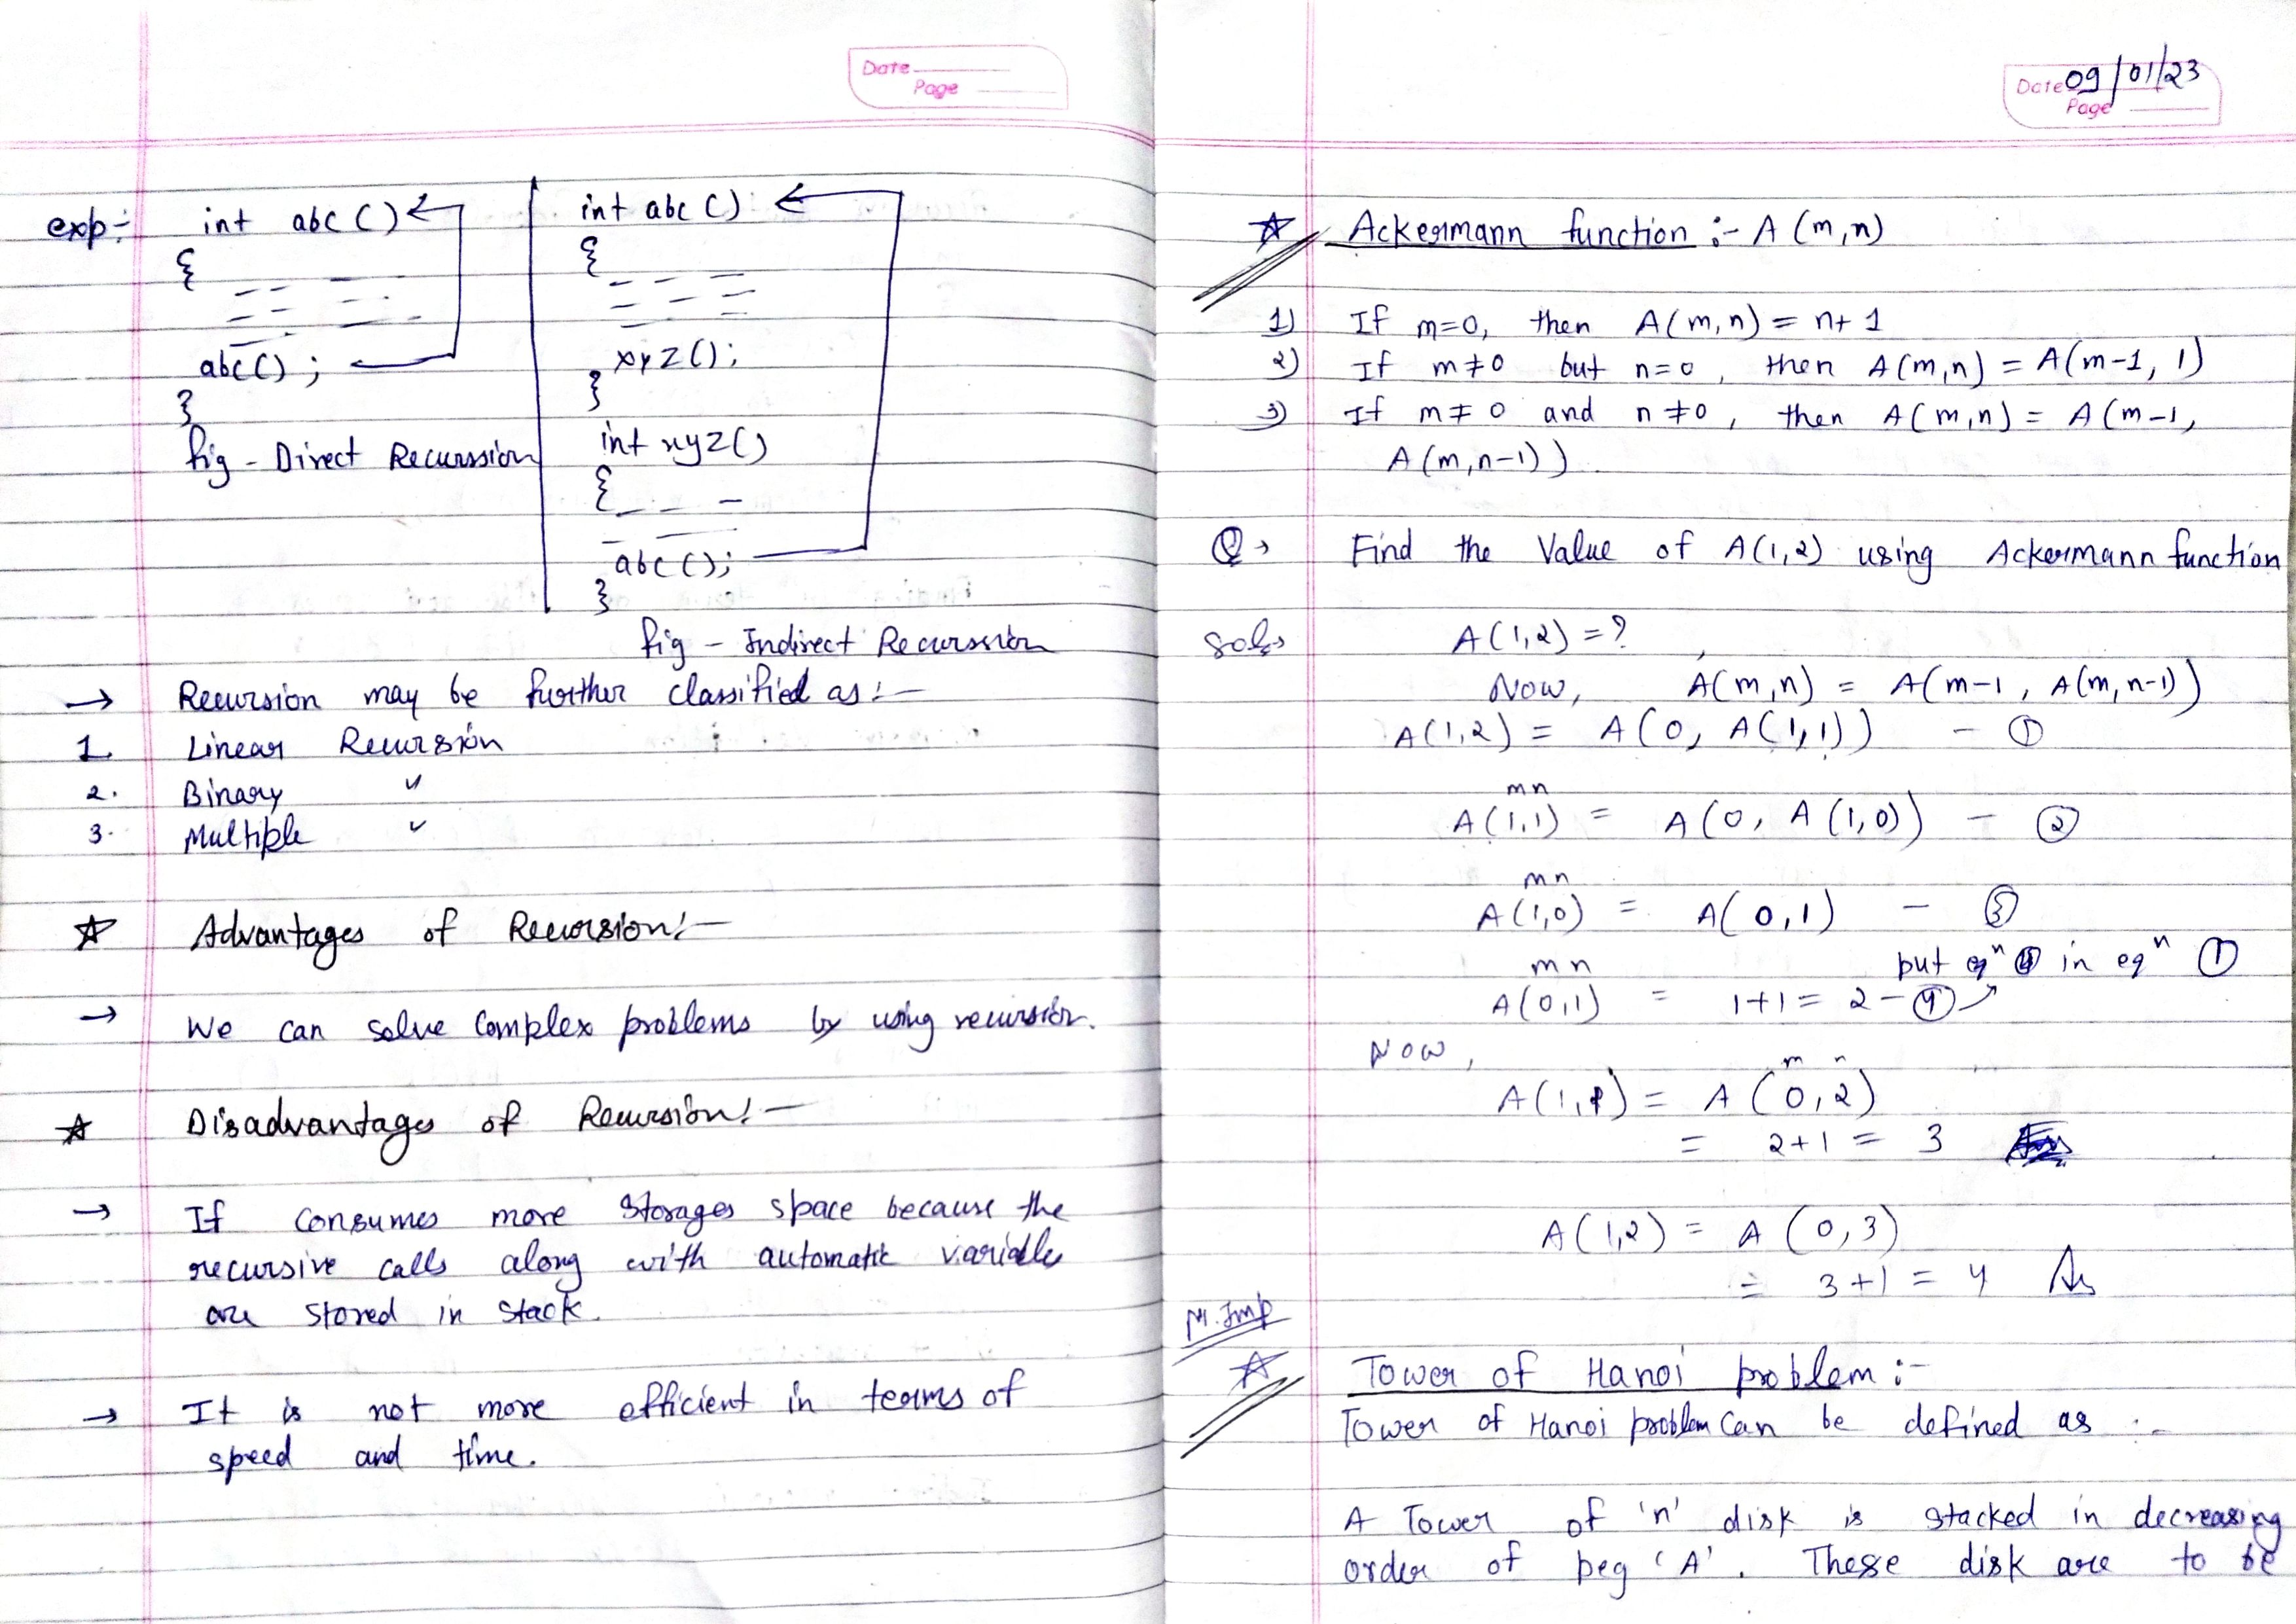 Date
Page
exp:-
int abc()
{
abc();
}
fig - Direct Recurssion
int abc()
{
xyz();
}
int xyz()
{
abc();
}
fig - Indirect Recurssion
→ Recursion may be further classified as:-
1. Linear Recursion
2. Binary "
3. Multiple "
☆ Advantages of Recursion:-
→ We can solve Complex problems by using recursion.
☆ Disadvantages of Recursion:-
→ If consumes more storages space because the
recursive calls along with automatic variables
are stored in stack.
→ It is not more efficient in terms of
speed and time.
Date 09/01/23
Page
☆ Ackermann function :- A (m,n)
1) If m=0, then A(m,n) = n+1
2) If m≠0 but n=0, then A(m,n) = A(m-1, 1)
3) If m≠0 and n≠0, then A(m,n) = A(m-1,
A(m,n-1))
Q→ Find the Value of A(1,2) using Ackermann function
Sol→ A(1,2) = ?
Now, A(m,n) = A(m-1, A(m,n-1))
A(1,2) = A(0, A(1,1)) - ①
m n
A(1,1) = A(0, A(1,0)) - ②
m n
A(1,0) = A(0,1) - ③
put eqⁿ ④ in eqⁿ ①
m n
A(0,1) = 1+1 = 2 - ④
Now,
m n
A(1,1) = A(0,2)
= 2+1 = 3
A(1,2) = A(0,3)
= 3+1 = 4 Ans
M.Imp
☆ Tower of Hanoi problem :-
Tower of Hanoi problem can be defined as :-
A Tower of 'n' disk is stacked in decreasing
order of peg 'A'. These disk are to be